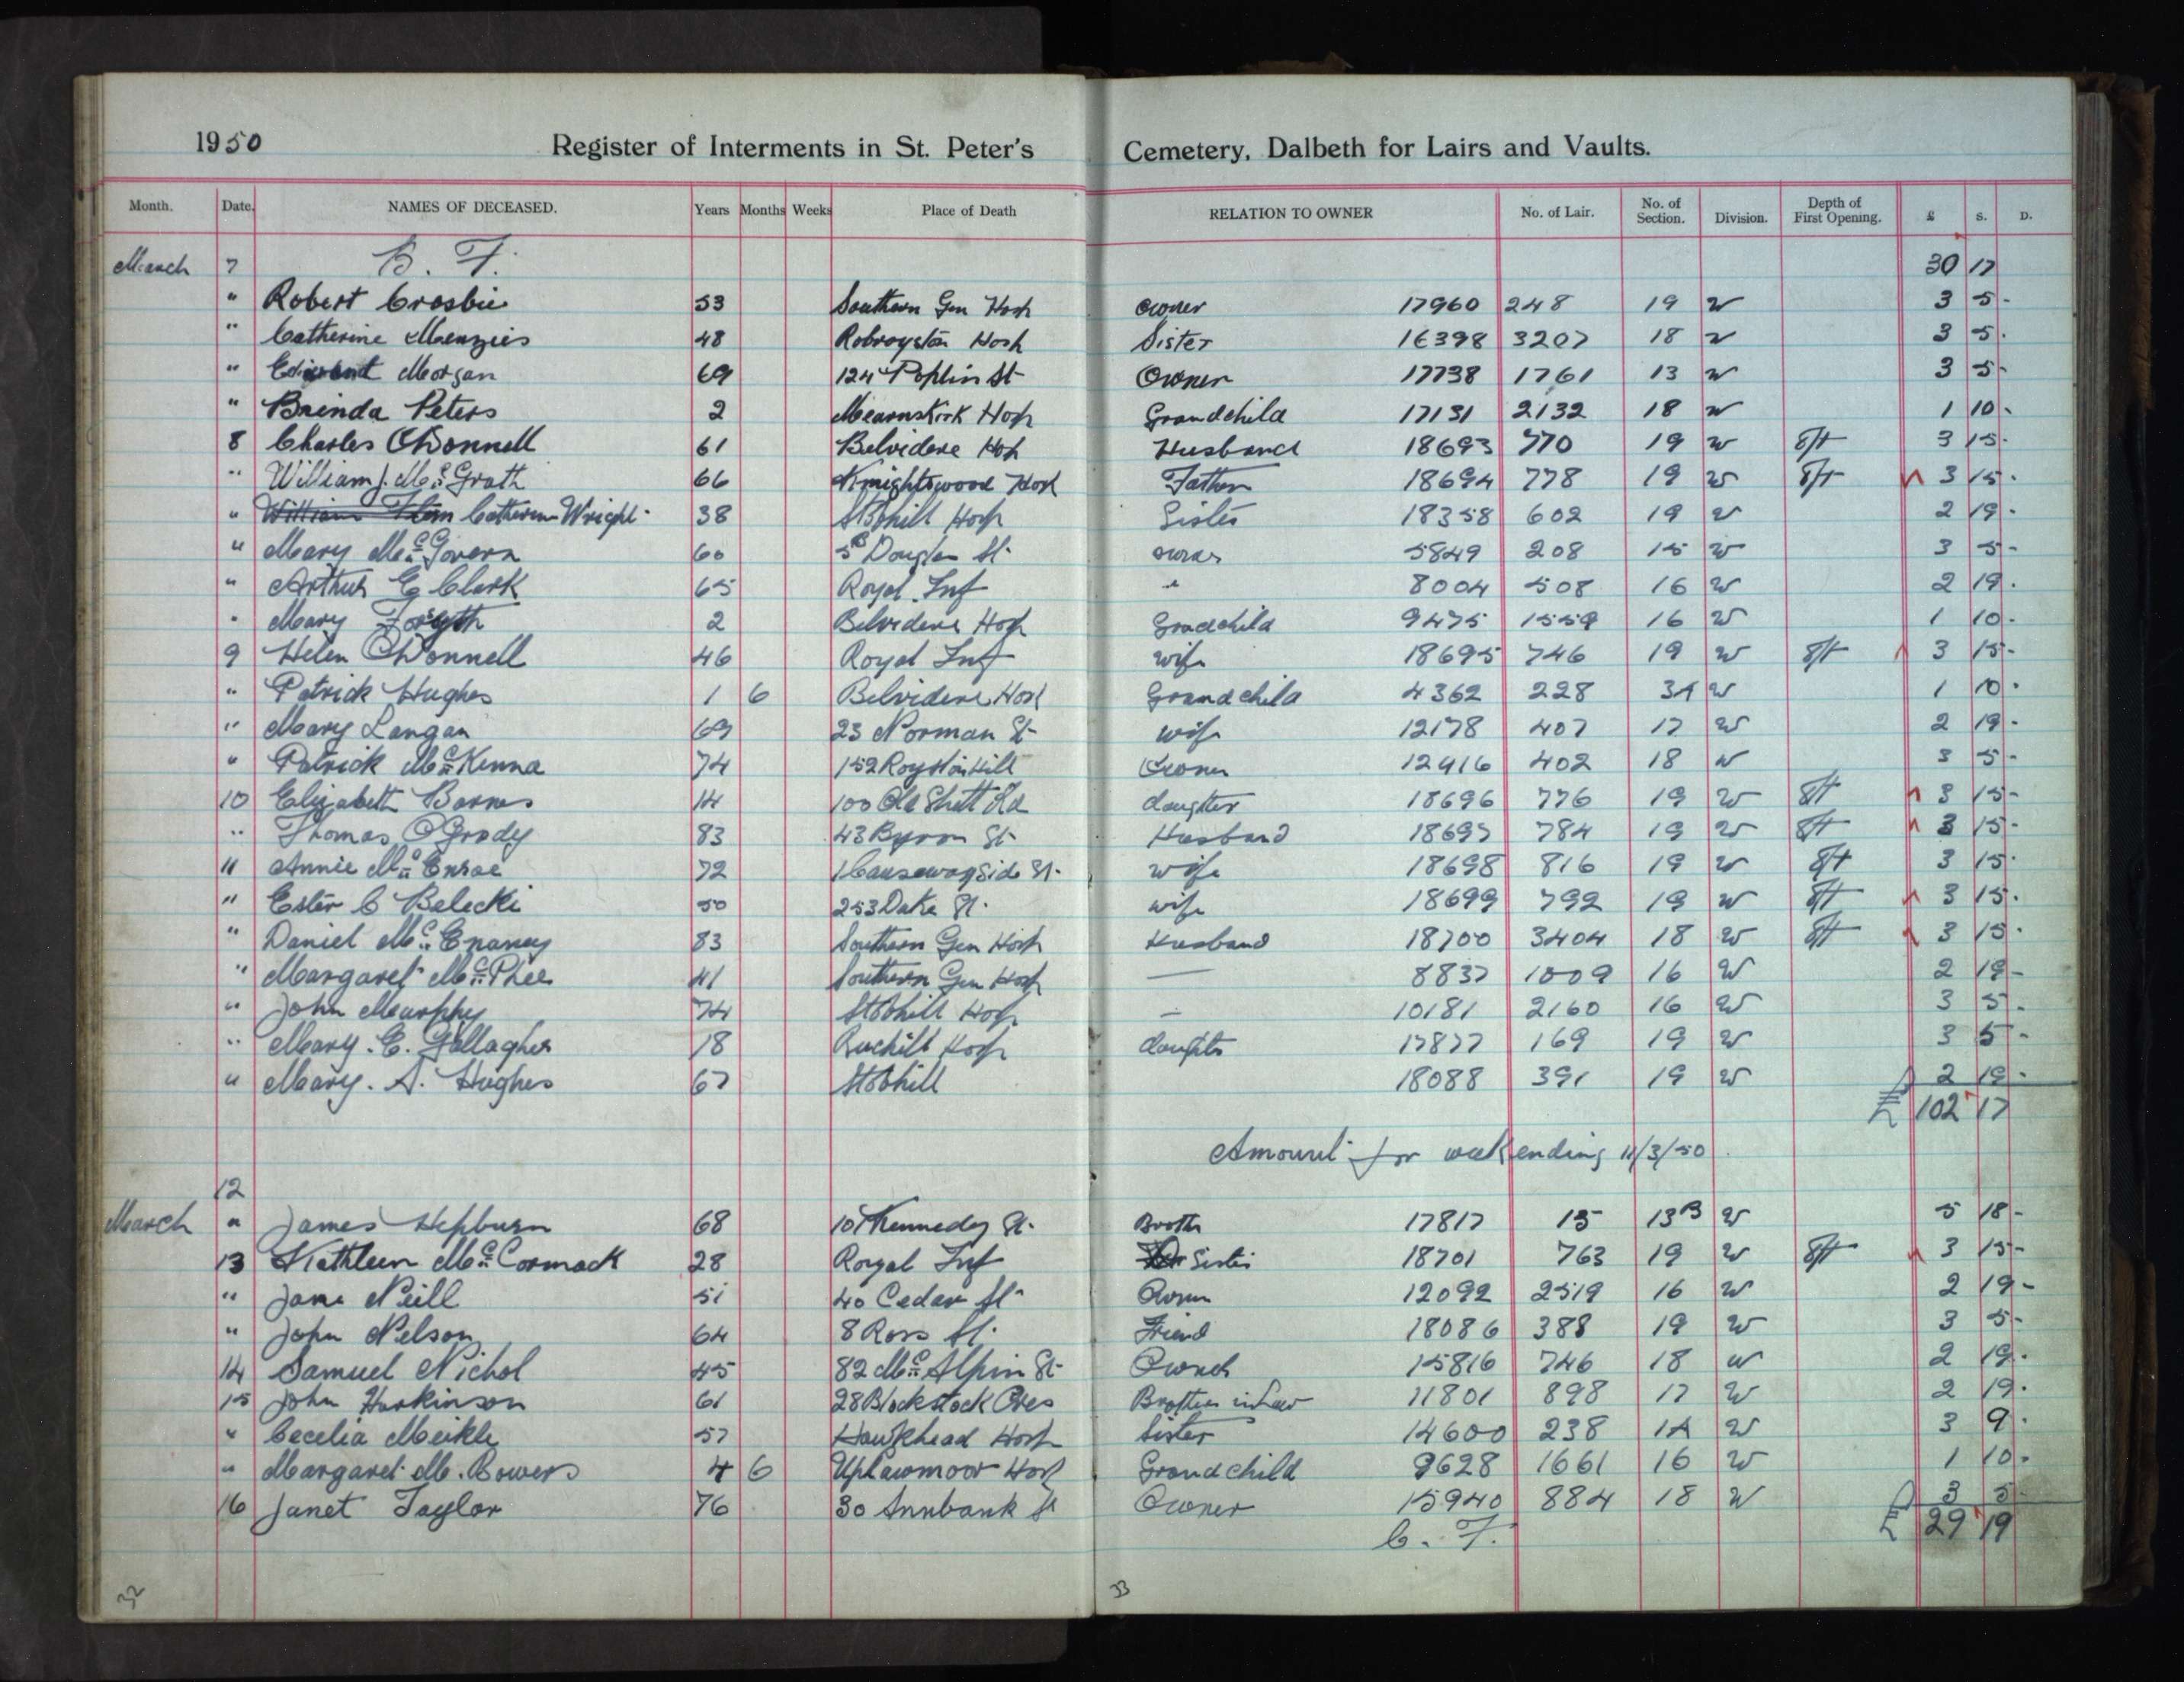 1950 Register of Interments in St. Peter's Cemetery, Dalbeth for Lairs and Vaults.
Month. Date. NAMES OF DECEASED. Years Months Weeks Place of Death RELATION TO OWNER No. of Lair. No. of Section. Division. Depth of First Opening. £ S. D.
March 7 B. F. 30 17
" Robert Crosbie 53 Southern Gen Hosp Owner 17960 248 19 W 3 5 -
" Catherine Menzies 48 Robroyston Hosp Sister 16398 3207 18 W 3 5 -
" Morgan 69 124 Poplin St Owner 17738 1761 13 W 3 5 -
" Brinda Peters 2 Mearnskirk Hosp Grandchild 17131 2132 18 W 1 10 -
8 Charles O'Donnell 61 Belvidere Hosp Husband 18693 770 19 W 8ft 3 15 -
" William J. McGrath 66 Knightswood Hosp Father 18694 778 19 W 8ft 3 15 -
" William Catherine Wright 38 Stobhill Hosp Sister 18358 602 19 W 2 19 -
" Mary McGovern 60 Douglas St. owner 5849 208 15 W 3 5 -
" Arthur E Clark 65 Royal Inf " 8004 508 16 W 2 19 -
" Mary Forsyth 2 Belvidere Hosp Gradchild 9475 1559 16 W 1 10 -
9 Helen O'Donnell 46 Royal Inf wife 18695 746 19 W 8ft 3 15 -
" Patrick Hughes 1 6 Belvidere Hosp Grandchild 4362 228 3A W 1 10 -
" Mary Langan 69 23 Norman St wife 12178 407 17 W 2 19 -
" Patrick McKenna 74 152 Royston Hill Owner 12916 402 18 W 3 5 -
10 Elizabeth Barnes 14 100 Old Shett Rd daughter 18696 776 19 W 8ft 3 15 -
" Thomas O'Grady 83 43 Byron St Husband 18697 784 19 W 8ft 3 15 -
11 Annie McEnroe 72 1 Causewayside St. wife 18698 816 19 W 8ft 3 15 -
" Ester C Belecki 50 253 Duke St. wife 18699 792 19 W 8ft 3 15 -
" Daniel McEnaney 83 Southern Gen Hosp Husband 18700 3404 18 W 8ft 3 15 -
" Margaret McPhee 41 Southern Gen Hosp — 8837 1009 16 W 2 19 -
" John Murphy 74 Stobhill Hosp — 10181 2160 16 W 3 5 -
" Mary. E. Gallagher 18 Ruchill Hosp daughter 17877 169 19 W 3 5 -
" Mary. A. Hughes 67 Stobhill 18088 391 19 W 2 19 -
£ 102 17
Amount for week ending 11/3/50
12
March " James Hepburn 68 107 Kennedy St. Brother 17817 15 13B W 5 18 -
13 Kathleen McCormack 28 Royal Inf Sister 18701 763 19 W 8ft 3 15 -
" Jane Neill 51 40 Cedar St Owner 12092 2519 16 W 2 19 -
" John Nelson 64 8 Ross St. Friend 18086 388 19 W 3 5 -
14 Samuel Nichol 45 82 McAlpin St Owner 15816 746 18 W 2 19 -
15 John Harkinson 61 28 Blackstock Cres Brother in Law 11801 898 17 W 2 19 -
" Cecelia Meikle 57 Hawkhead Hosp Sister 14600 238 1A W 3 9 -
" Margaret M. Bowers 4 6 Uplawmoor Hosp Grandchild 9628 1661 16 W 1 10 -
16 Janet Taylor 76 30 Annbank St Owner 15940 884 18 W 3 5 -
C. F. £ 29 19
32 33